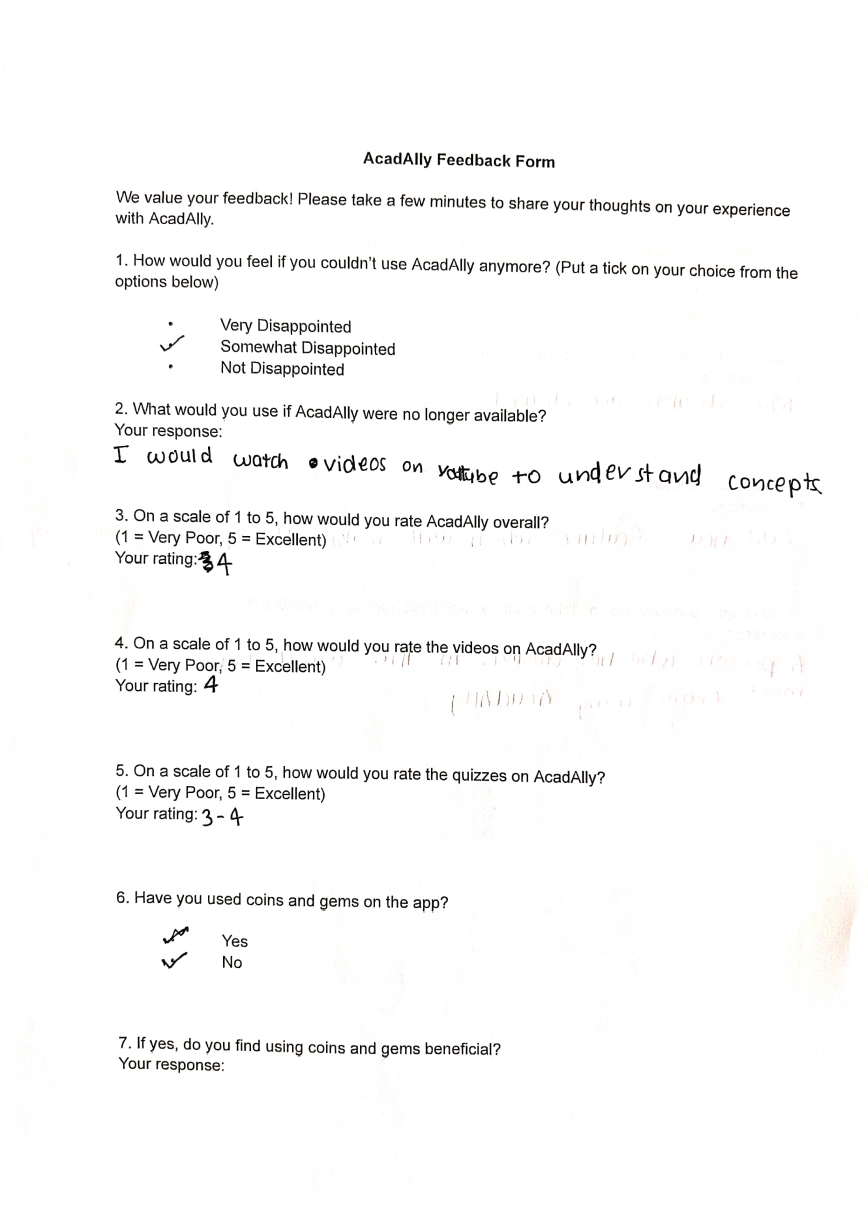 AcadAlly Feedback Form
We value your feedback! Please take a few minutes to share your thoughts on your experience
with AcadAlly.
1. How would you feel if you couldn't use AcadAlly anymore? (Put a tick on your choice from the
options below)
• Very Disappointed
✓ Somewhat Disappointed
• Not Disappointed
2. What would you use if AcadAlly were no longer available?
Your response:
I would watch videos on to understand concepts
3. On a scale of 1 to 5, how would you rate AcadAlly overall?
(1 = Very Poor, 5 = Excellent)
Your rating: 4
4. On a scale of 1 to 5, how would you rate the videos on AcadAlly?
(1 = Very Poor, 5 = Excellent)
Your rating: 4
5. On a scale of 1 to 5, how would you rate the quizzes on AcadAlly?
(1 = Very Poor, 5 = Excellent)
Your rating: 3-4
6. Have you used coins and gems on the app?
Yes
✓ No
7. If yes, do you find using coins and gems beneficial?
Your response: